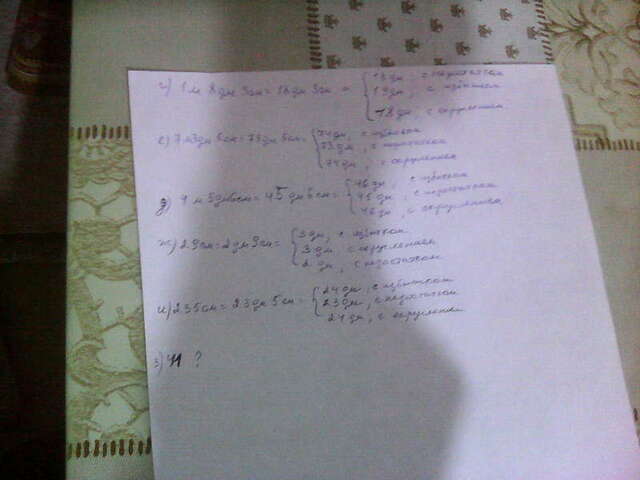 18 дм, с недостатком
г) 1 м 8 дм 3 см = 18 дм 3 см = { 19 дм, с избытком
18 дм, с округлением
74 дм, с избытком
е) 7 м 3 дм 5 см = 73 дм 5 см = { 73 дм, с недостатком
74 дм, с округлением
46 дм, с избытком
д) 4 м 5 дм 6 см = 45 дм 6 см = { 45 дм, с недостатком
46 дм, с округлением
3 дм, с избытком
ж) 29 см = 2 дм 9 см = { 3 дм с округлением
2 дм, с недостатком
24 дм, с избытком
и) 235 см = 23 дм 5 см = { 23 дм, с недостатком
24 дм, с округлением
з) ?